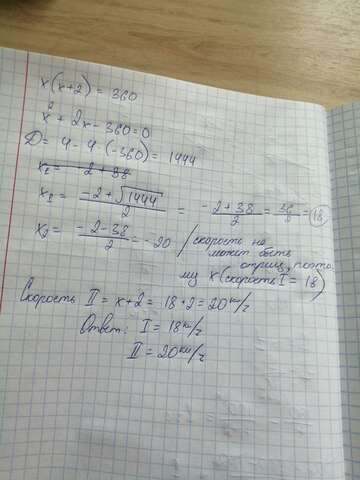 x(x+2) = 360
x² + 2x - 360 = 0
D = 4 - 4 · (-360) = 1444
x₁ = 2 + 38
x₁ = -2 + √1444 / 2 = -2 + 38 / 2 = 36 / 2 = 18
x₂ = -2 - 38 / 2 = -20 / скорость не
может быть
отриц, поэто
му x (скорость I = 18)
Скорость II = x + 2 = 18 + 2 = 20 км/ч
Ответ: I = 18 км/ч
II = 20 км/ч